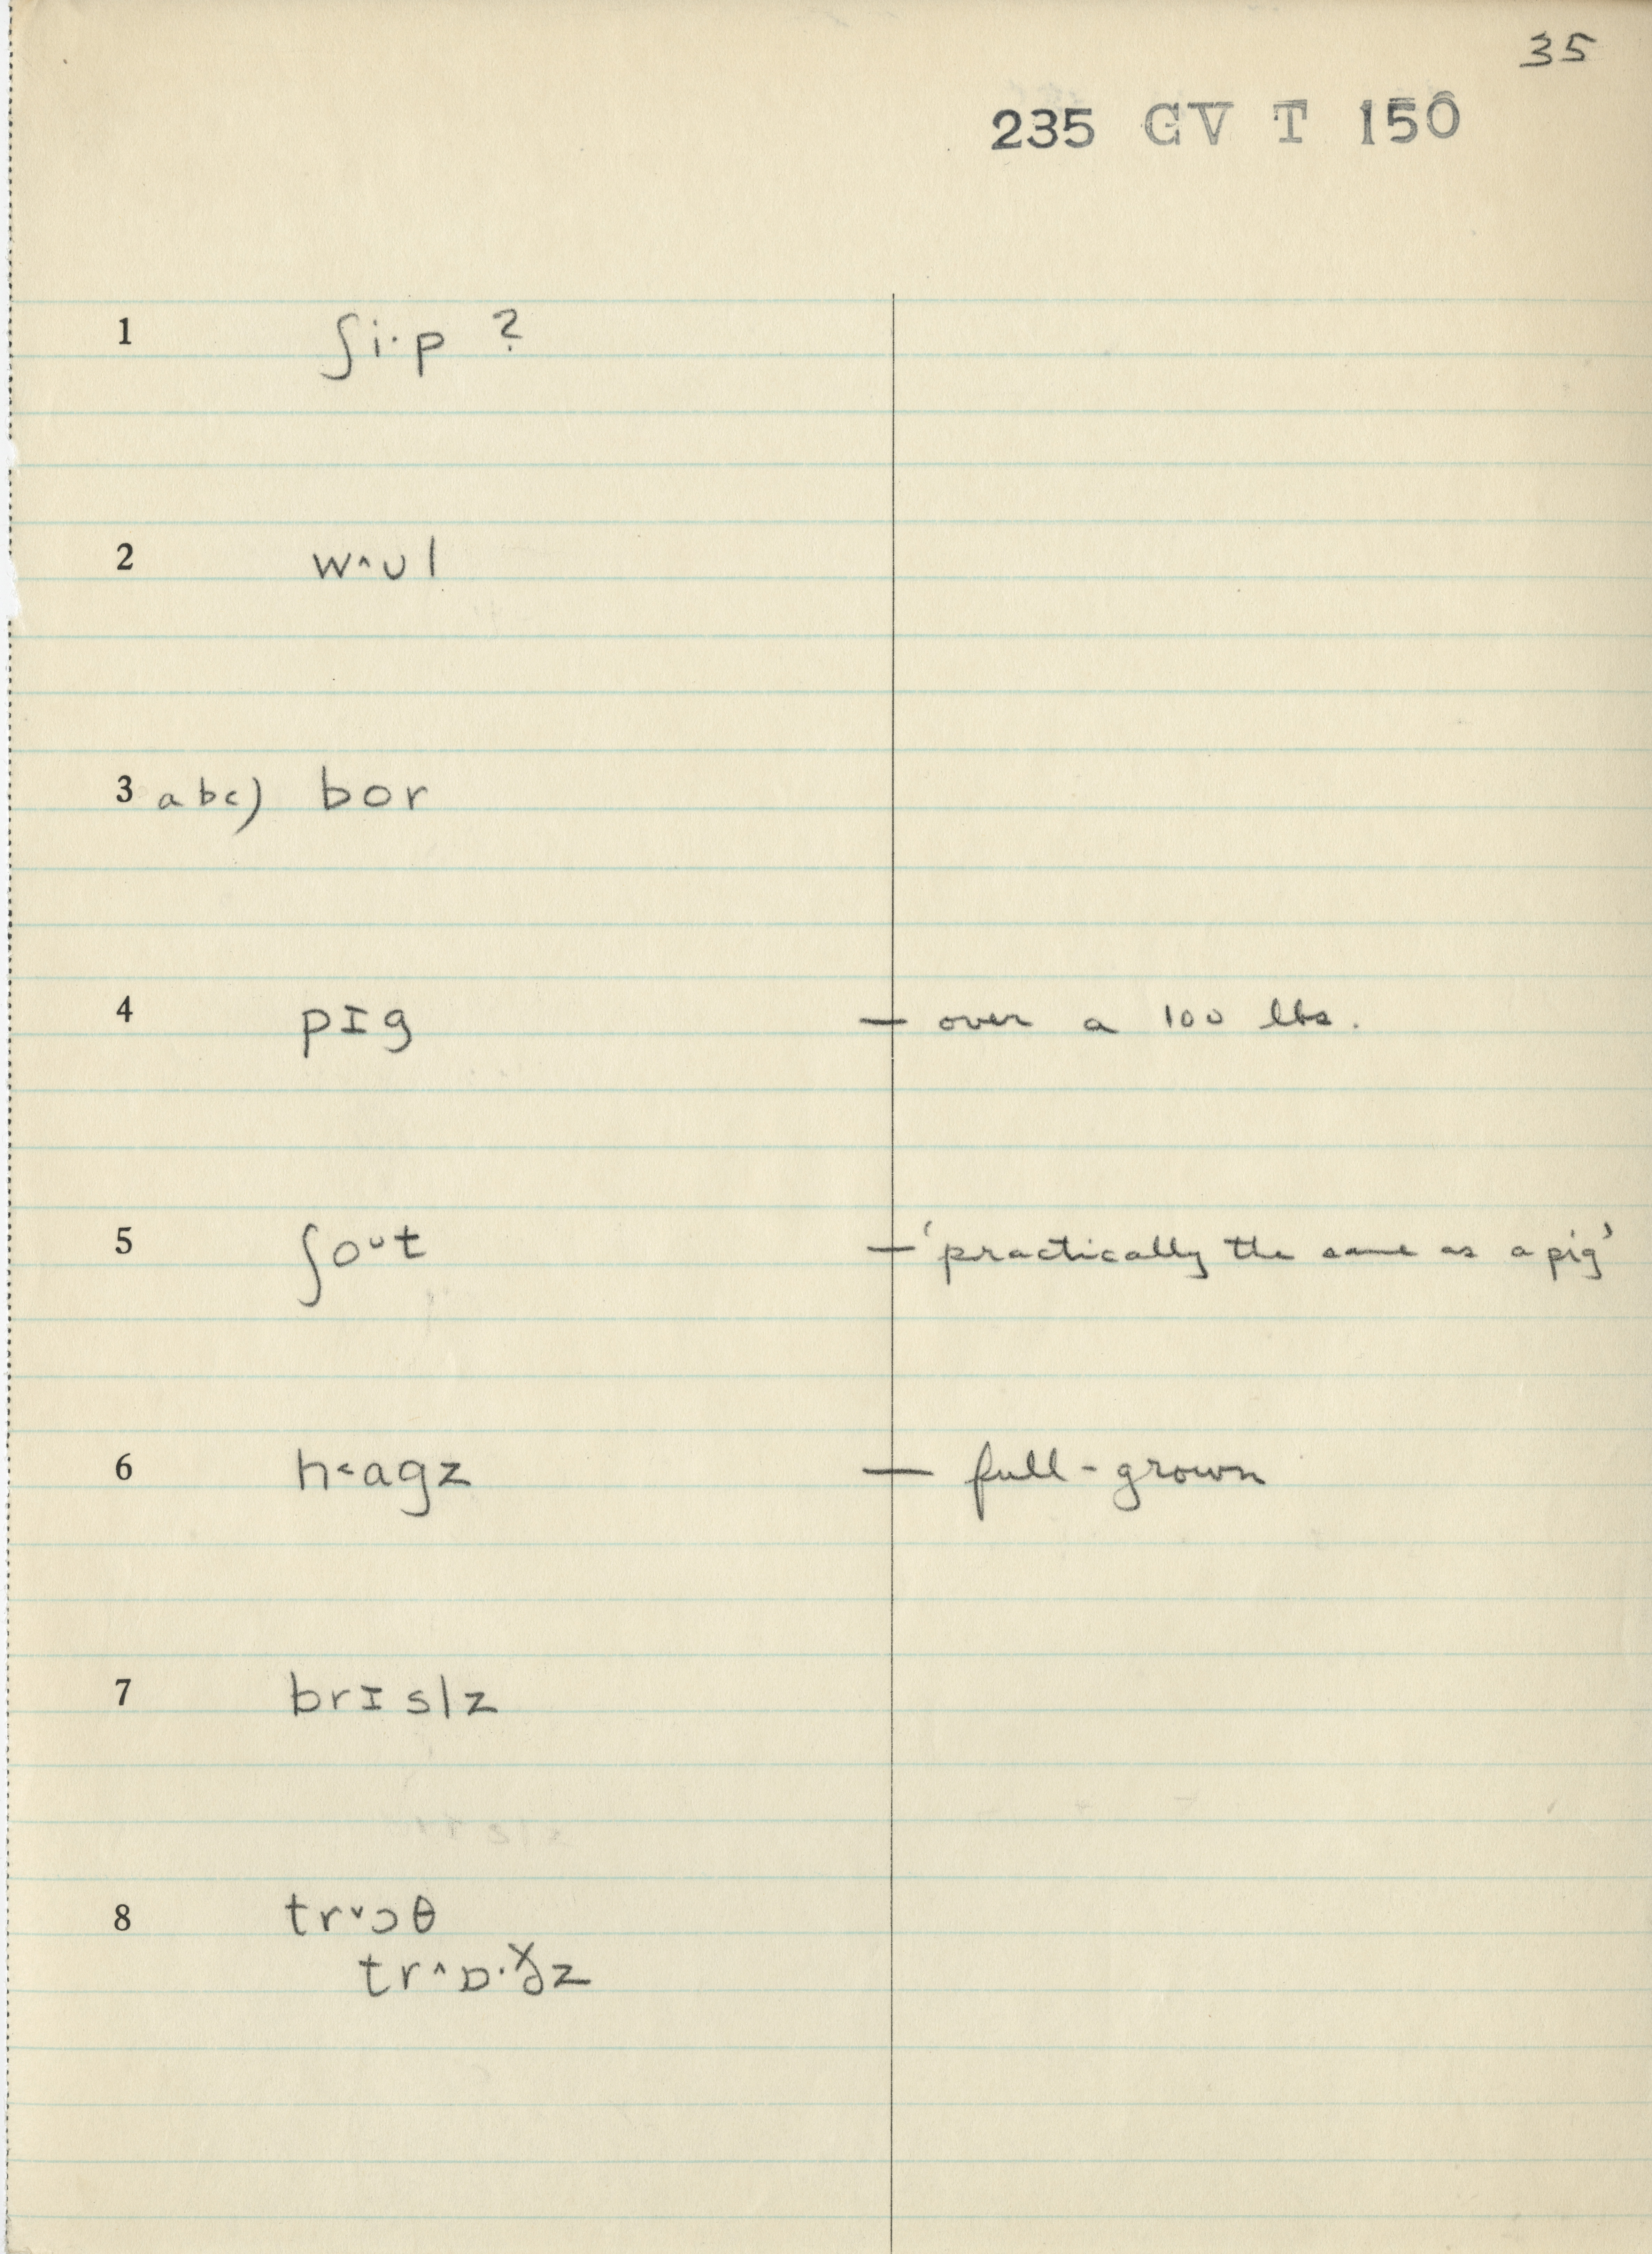 35
235 GV T 150
1 ʃi·p ?
2 w^ʊl
3 abc) bor
4 pɪg — over a 100 lbs.
5 ʃoᴜt — 'practically the same as a pig'
6 h˂agz — full-grown
7 brɪslz
8 tr˅ɔθ
tr^ɒ·ɣ̌z